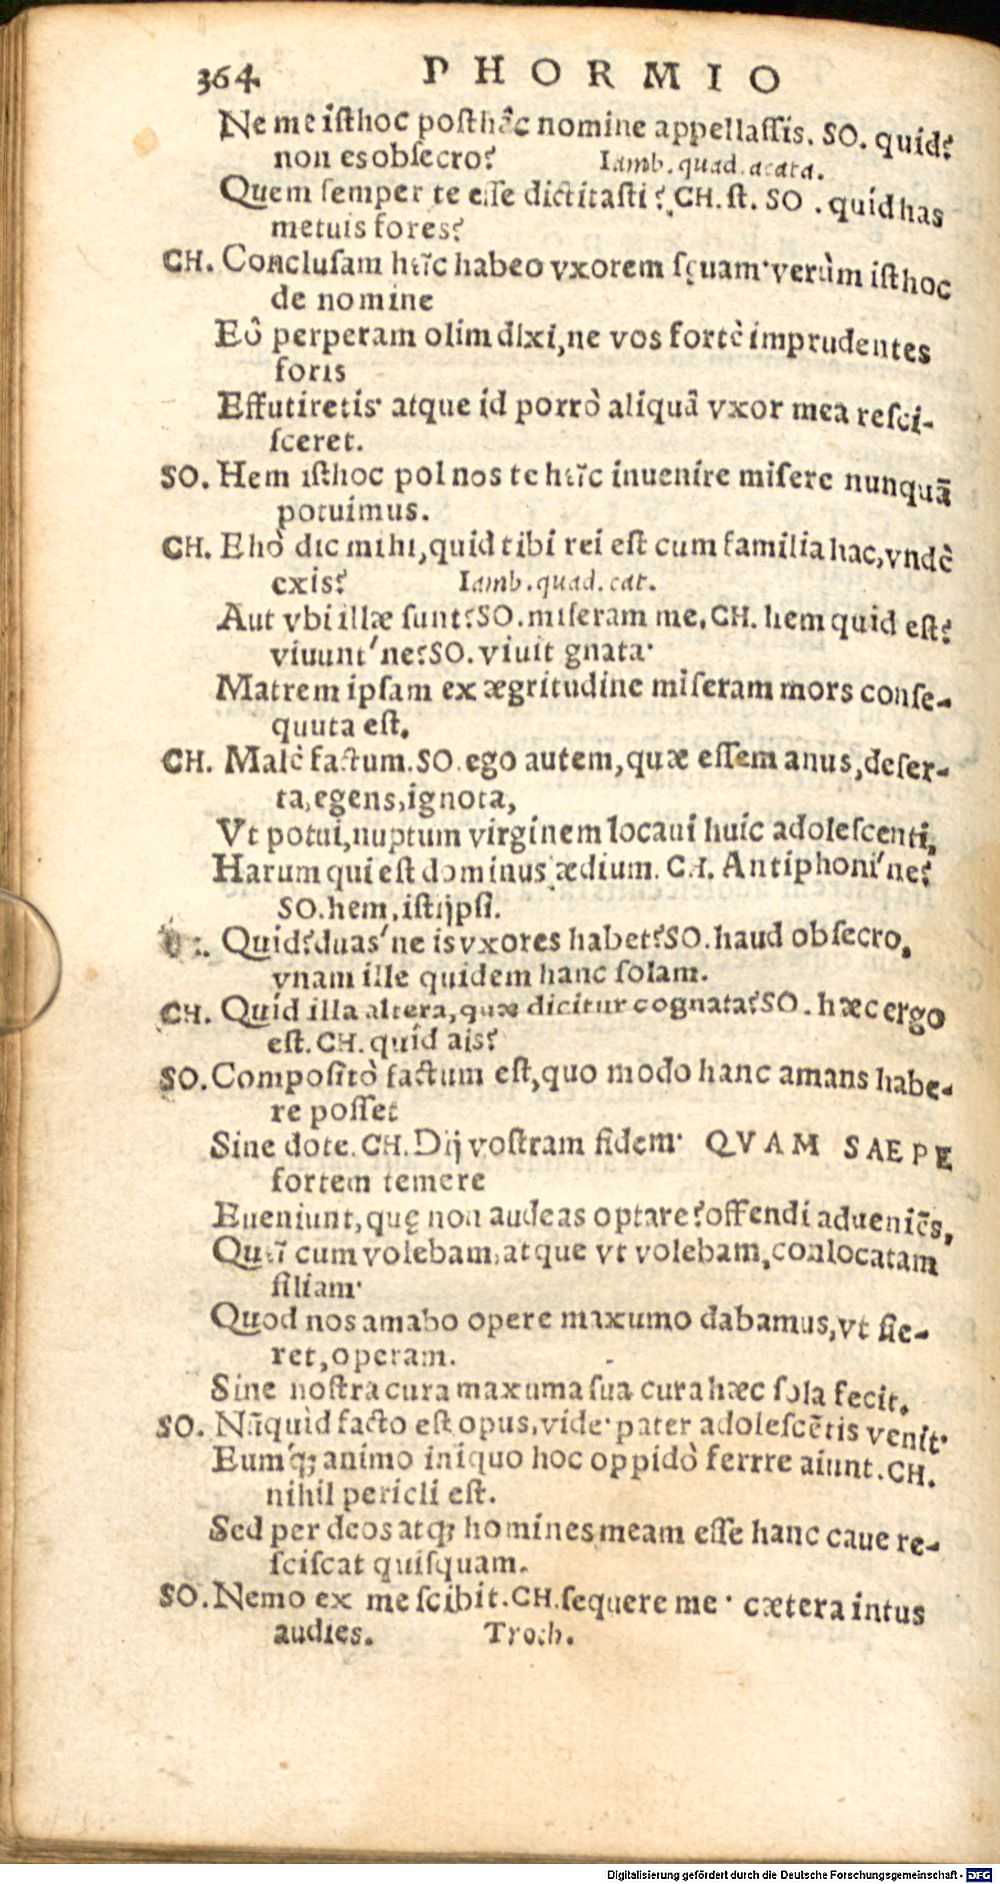 364 PHORMIO
Ne me isthoc posthâc nomine appellassis. SO. quid?
non es obsecro? Iamb. quad. acata.
Quem semper te esse dictitasti? CH. st. SO. quid has
metuis fores?
CH. Conclusam hîc habeo vxorem sęuam· verùm isthoc
de nomine
Eô perperam olim dixi, ne vos fortè imprudentes
foris
Effutiretis· atque id porrò aliquâ vxor mea resci-
sceret.
SO. Hem isthoc pol nos te hîc inuenire misere nunquã
potuimus.
CH. Eho dic mihi, quid tibi rei est cum familia hac, vndè
exis? Iamb. quad. cat.
Aut vbi illæ sunt? SO. miseram me. CH. hem quid est?
viuunt'ne? SO. viuit gnata·
Matrem ipsam ex ægritudine miseram mors conse-
quuta est.
CH. Malè factum. SO. ego autem, quæ essem anus, deser-
ta, egens, ignota,
Vt potui, nuptum virginem locaui huic adolescenti,
Harum qui est dominus ædium. CH. Antiphoni'ne?
SO. hem, istijpsi.
Quid? duas'ne is vxores habet? SO. haud obsecro,
vnam ille quidem hanc solam.
CH. Quid illa altera, quæ dicitur cognata? SO. hæc ergo
est. CH. quid ais?
SO. Compositò factum est, quo modo hanc amans habe-
re posset
Sine dote. CH. Dij vostram fidem· QVAM SAEPE
fortem temere
Eueniunt, quę non audeas optare? offendi adueniẽs,
Quĩ cum volebam, atque vt volebam, conlocatam
filiam·
Quod nos amabo opere maxumo dabamus, vt fie-
ret, operam.
Sine nostra cura maxuma sua cura hæc sola fecit.
SO. Nũquid facto est opus, vide· pater adolescẽtis venit·
Eumq́; animo iniquo hoc oppidò ferrre aiunt. CH.
nihil pericli est.
Sed per deos atq; homines meam esse hanc caue re-
sciscat quisquam.
SO. Nemo ex me scibit. CH. sequere me· cætera intus
audies. Troch.
Digitalisierung gefördert durch die Deutsche Forschungsgemeinschaft - DFG